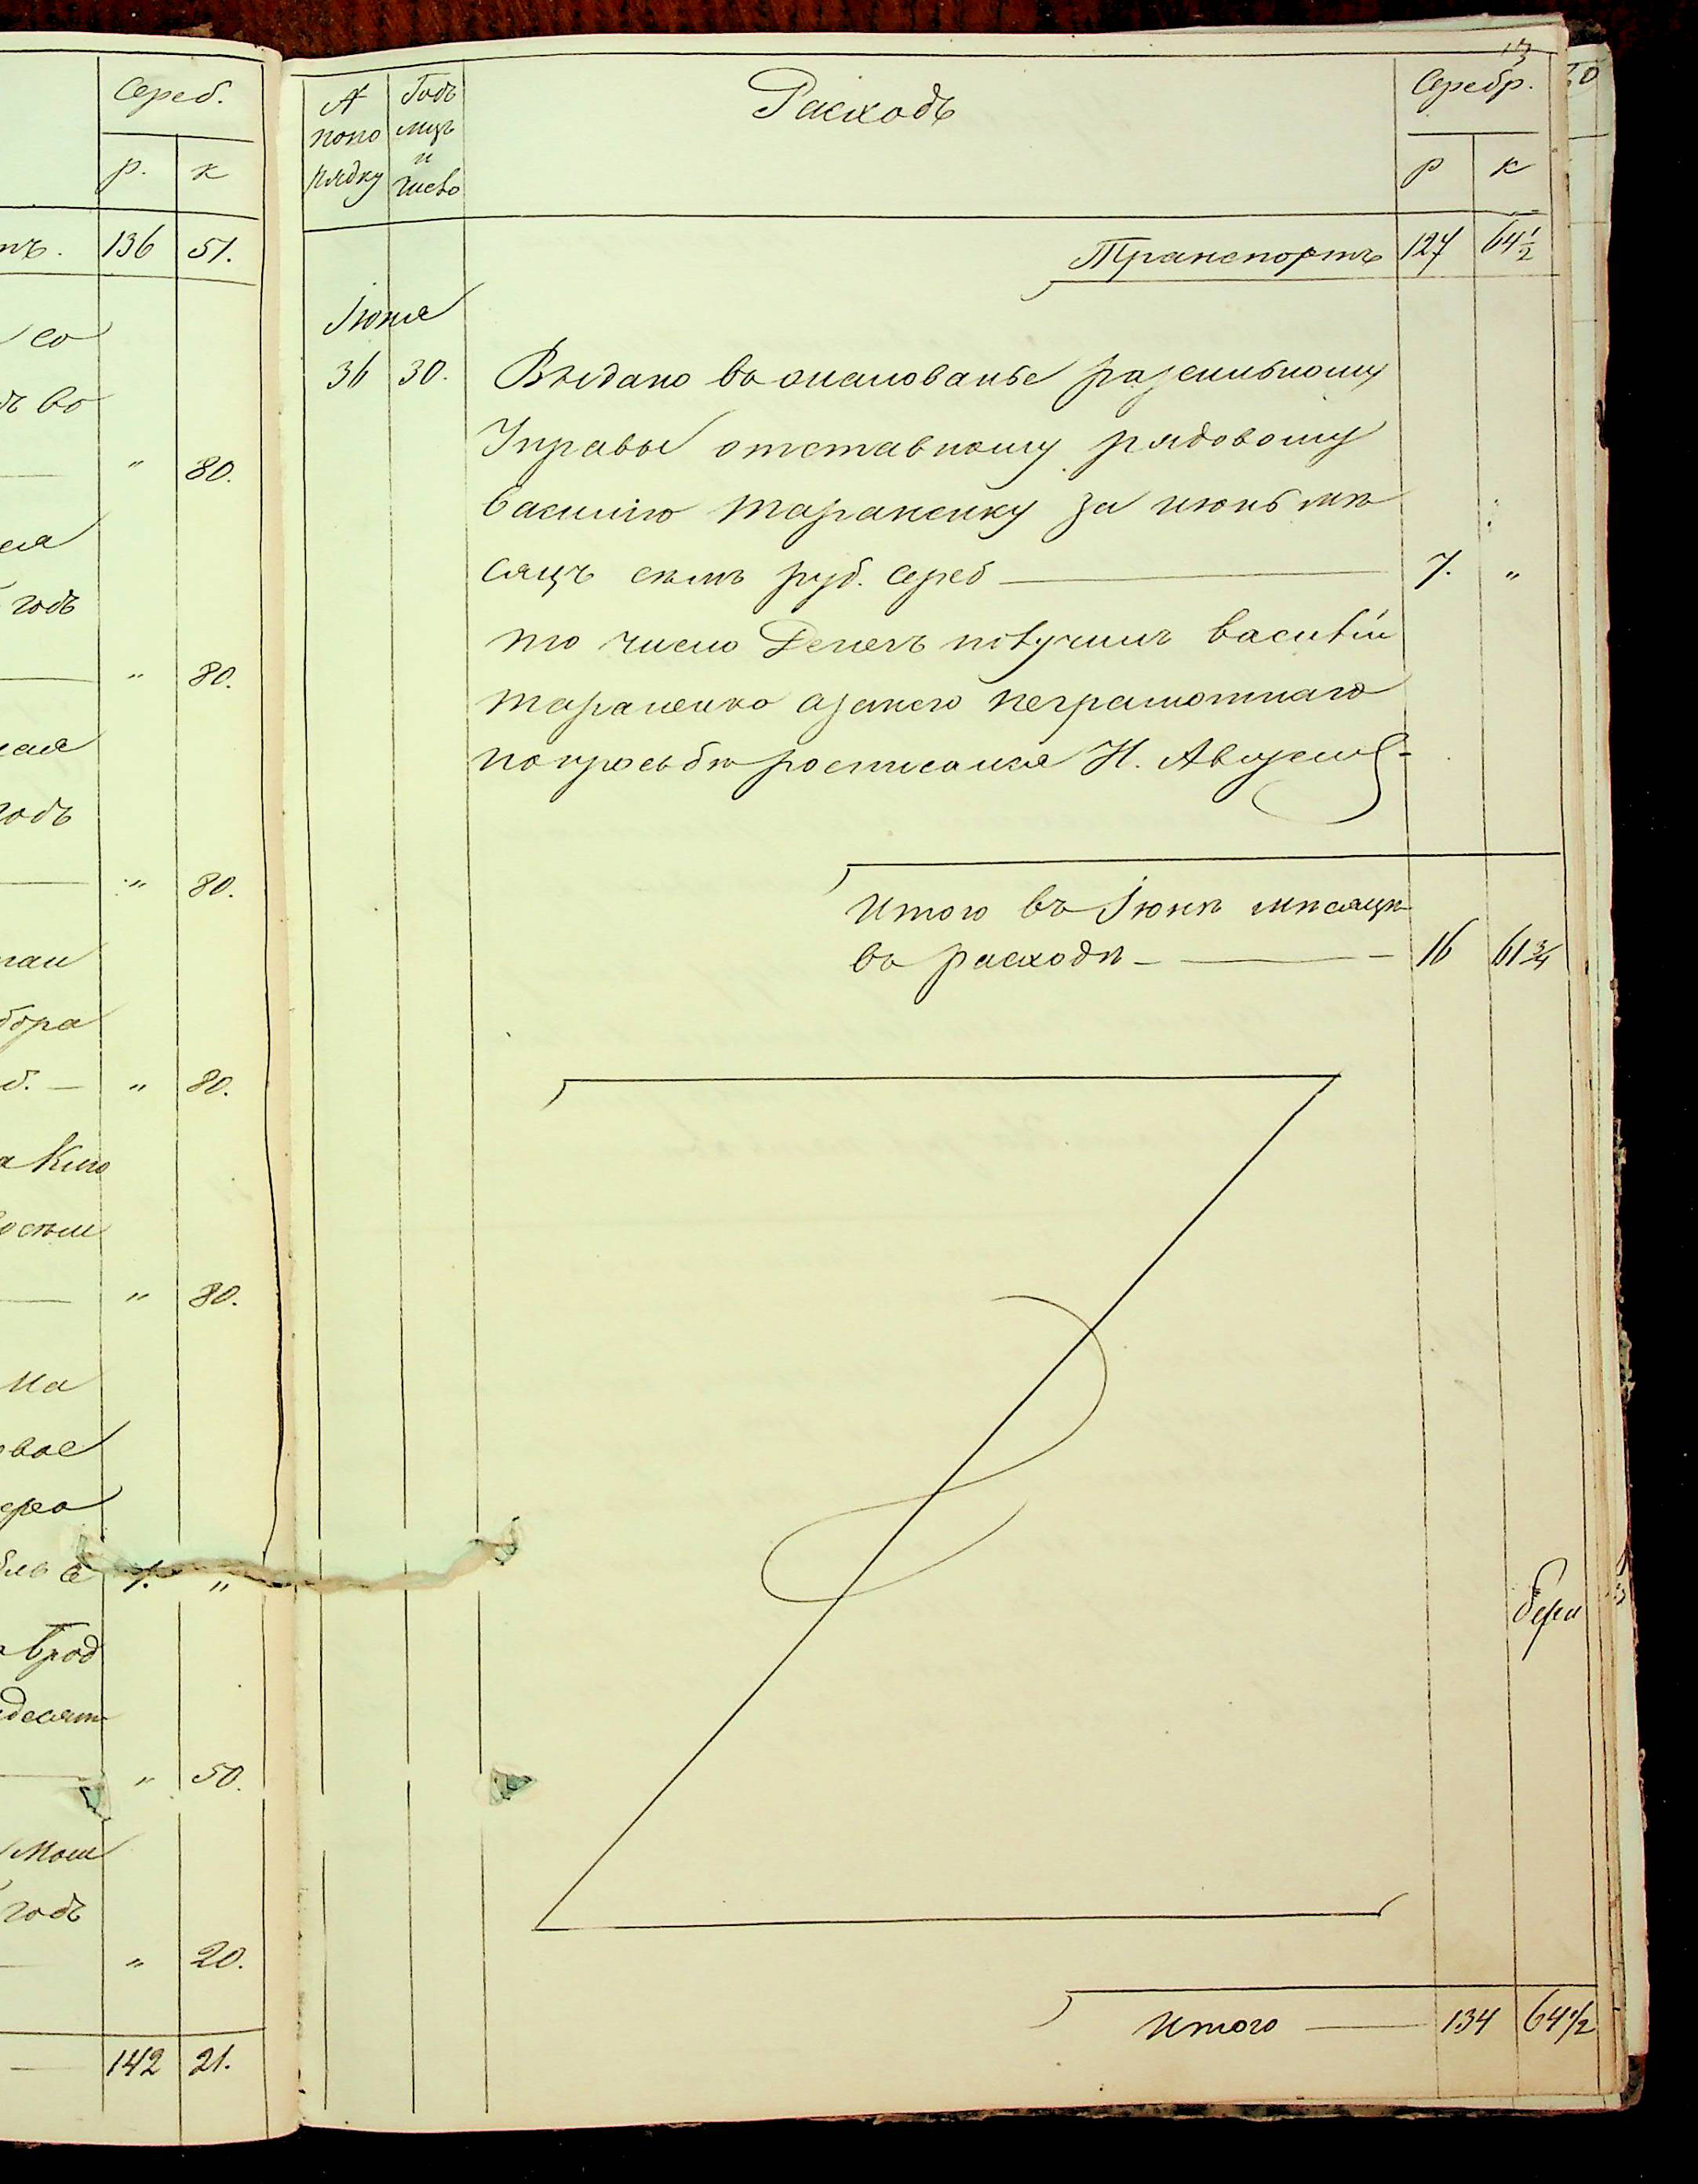 Сереб.
р. к
тъ. 136 51.
со
дъ во
" 80.
годъ
" 80.
годъ
" 80.
бора
б. — " 80.
" 80.
на
вое
1. "
Брод
десят
" 50.
Мош
годъ
" 20.
— 142 21.
13
№ попо рядку
Годъ мцъ и число
Расходъ
Серебр.
р к
Транспортъ 127 64 1/2
Іюня
36 30. Выдано въ жалованье разсыльному
Управы отставному рядовому
Василію Тараненку за июнь мѣ
сяцъ семь руб. сереб — 7. "
то число Денегъ получилъ Василій
Тараненко а за него неграмотнаго
по просьбѣ росписался Н.
Итого въ Іюнѣ мѣсяцѣ
въ расходѣ — 16 61 3/4
бери
Итого — 134 64 1/2